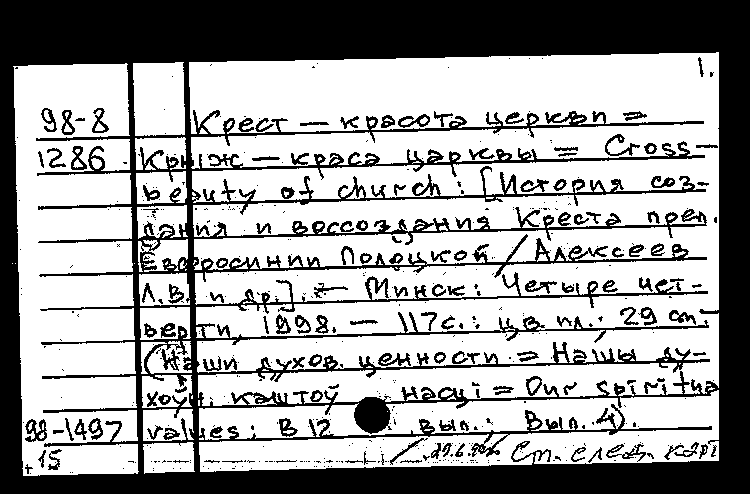 1.
98-8 Крест — красота церкви =
1286 Крыж — краса царквы = Cross—
beauty of church : [История соз-
дания и воссоздания Креста преп.
Евфросинии Полоцкой / Алексеев
Л.В. и др.]. — Минск : Четыре чет-
верти, 1998. — 117 с. : цв. ил. ; 29 см.
(Наши духов. ценности = Нашы ду-
хоўн. каштоў насці = Our spiritua
98-1497 values : В 12 вып. ; Вып. 4).
+15 См. след. карт